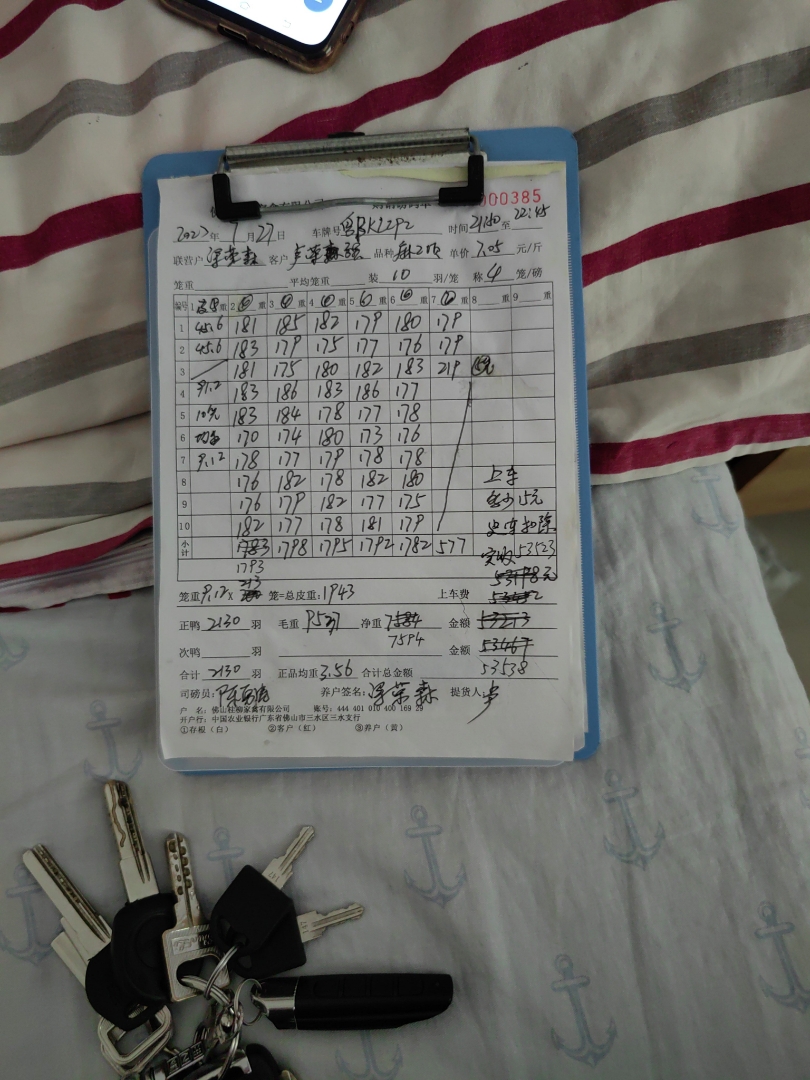 000385
2023年7月27日 车牌号粤BK2292 时间21:50至22:45
联营户 客户 品种 单价7.05元/斤
笼重 平均笼重 装10羽/笼 称4笼/磅
编号 1 皮重 2 毛重 3 毛重 4 毛重 5 毛重 6 毛重 7 毛重 8 重 9 重
1 45.6 181 185 182 179 180 179
2 45.6 183 179 175 177 176 179
3 181 175 180 182 183 219
4 91.2 183 186 183 186 177
5 10只 183 184 178 177 178
6 均重 170 174 180 173 176
7 9.12 178 177 179 178 178
8 176 182 178 182 180 上车
9 176 179 182 177 175 多少15元
10 182 177 178 181 179
小计 1783 1798 1795 1792 1782 577 实收53523
1793
213
笼重9.12X 笼=总皮重:1943 上车费
正鸭2130羽 毛重9537 净重7584 金额53273
7594
次鸭 羽 金额53467
合计2130羽 正品均重3.56 合计总金额 53538
司磅员: 养户签名:梁荣森 提货人 卢
户 名:佛山桂柳家禽有限公司 账号:444 401 010 400 169 29
开户行:中国农业银行广东省佛山市三水区三水支行
①存根(白) ②客户(红) ③养户(黄)